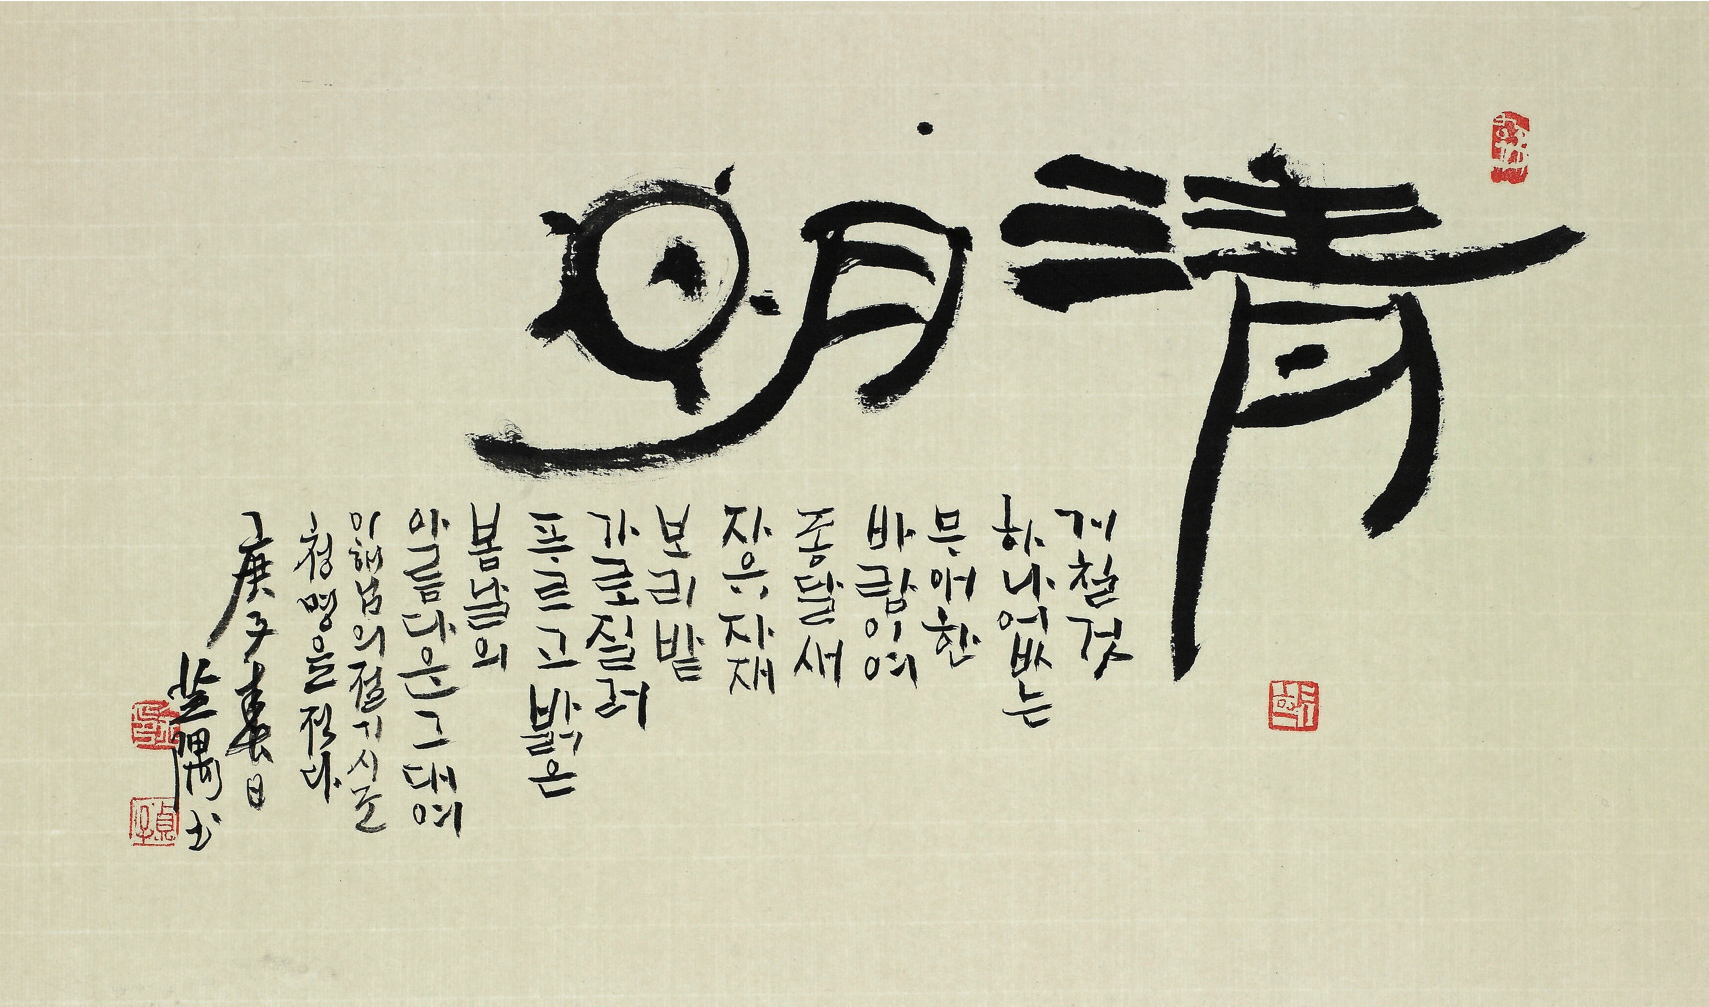 清明
거칠것
하나없는
무애한
바람이여
종달새
자유자재
보리밭
가로질러
푸르고밝은
봄날의
아름다운그대여
이해님의절기시중
청명을적다
庚子春日
隅书